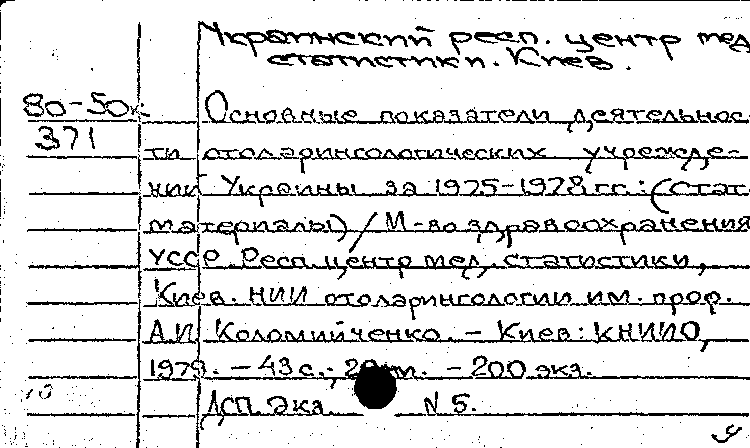 Украинский респ. центр мед
статистики. Киев.
80-50к Основные показатели деятельнос
371
ти отоларингологических учрежде-
ний Украины за 1975-1978 гг.: (Стат.
материалы) / М-во здравоохранения
УССР. Респ. центр мед. статистики,
Киев. НИИ отоларингологии им. проф.
А.И. Коломийченко. - Киев: КНИИО,
1979. - 43 с.; см. - 200 экз.
ДСП. Экз. N 5.